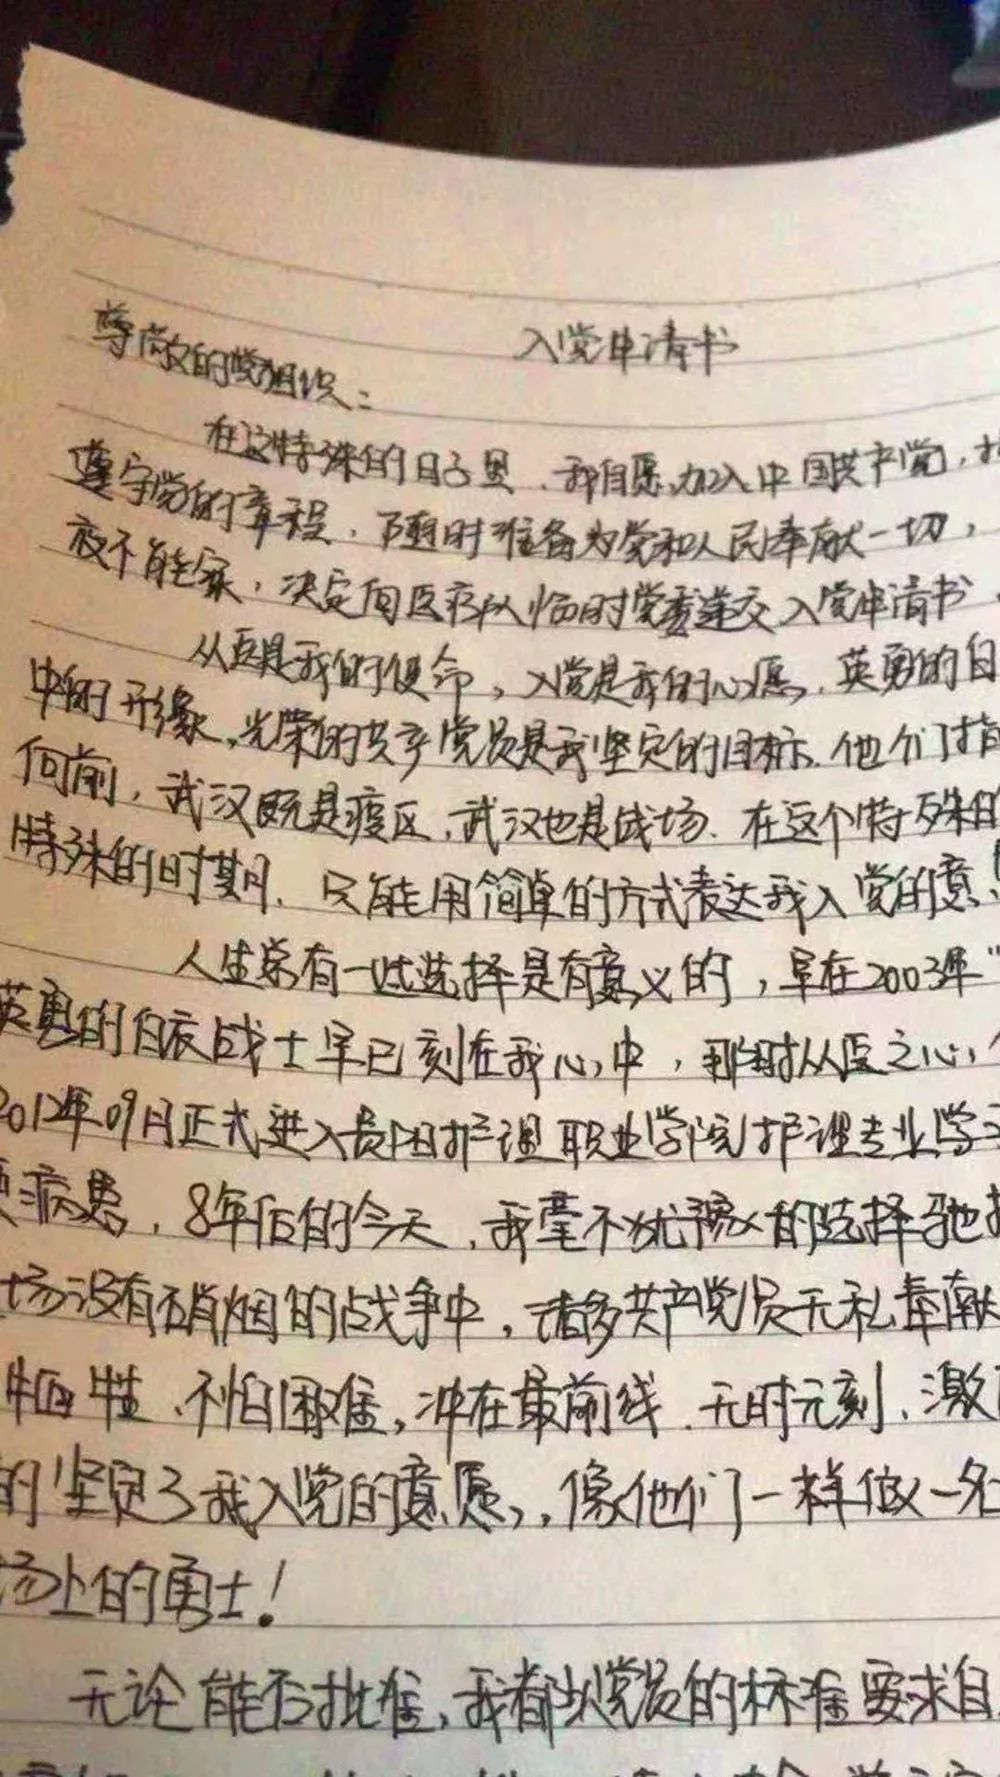 入党申请书
尊敬的党组织：
在这特殊的日子里，我自愿加入中国共产党，
遵守党的章程，随时准备为党和人民奉献一切，
夜不能寐，决定向医疗队临时党委递交入党申请书，
从医是我的使命，入党是我的心愿，英勇的白
中的形象，光荣的共产党员是我坚定的目标，他们指
向前，武汉既是疫区，武汉也是战场，在这个特殊的
特殊的时期，只能用简单的方式表达我入党的意
人生常有一些选择是有意义的，早在2003年"
英勇的白衣战士早已刻在我心中，那时从医之心，
2012年09月正式进入贵阳护理职业学院护理专业学
病患，8年后的今天，我毫不犹豫的选择驰
场没有硝烟的战争中，诸多共产党员无私奉献
牺牲，不怕困难，冲在最前线，无时无刻，激
的坚定了我入党的意愿，，像他们一样做一名
场上的勇士！
无论能否批准，我都以党员的标准要求自